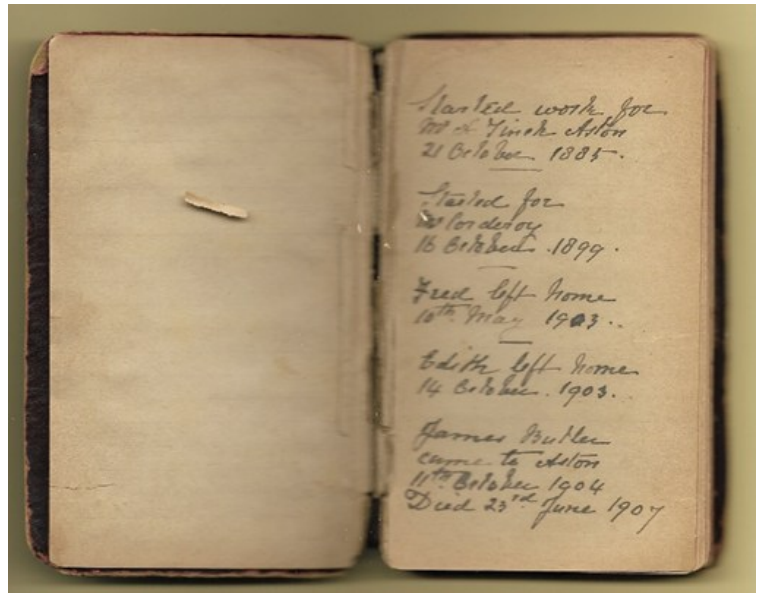 Started work for
Mr Finch Aston
21 October 1885.
Started for
Mr Corderoy
16 October. 1899.
Fred left home
10th May 1903.
Edith left home
14 October. 1903.
James Butler
came to Aston
11th October 1904
Died 23rd June 1907